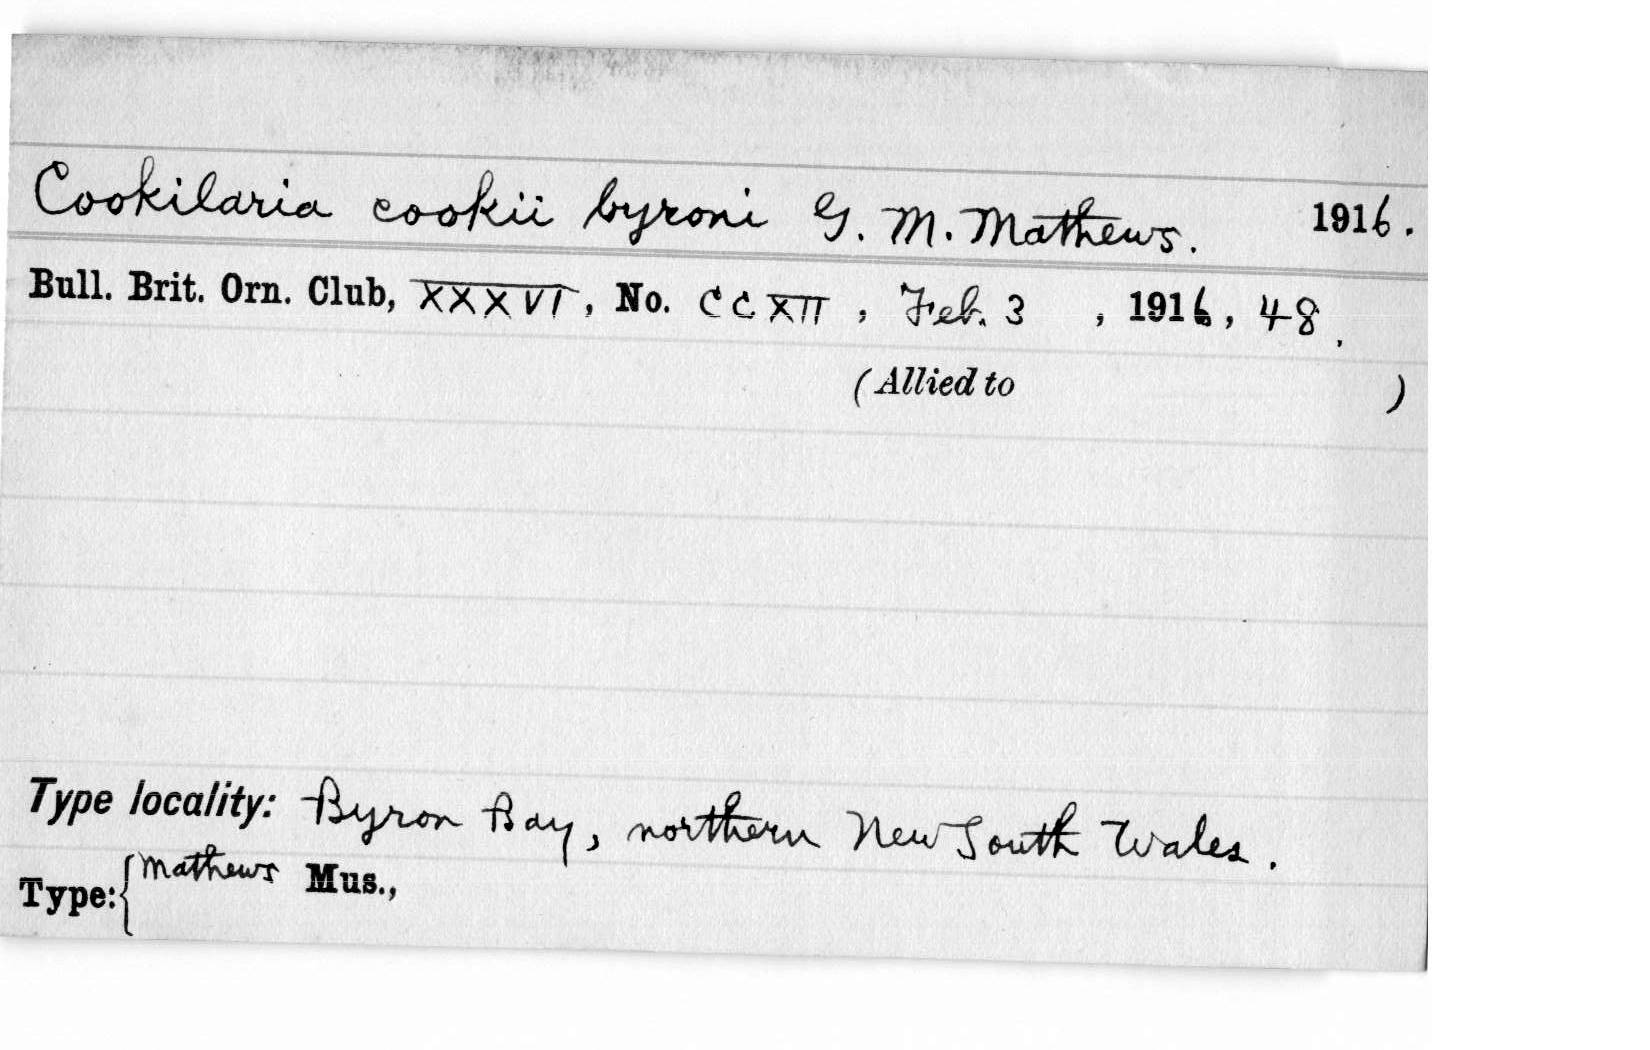 Cookilaria cookii byroni G. M. Mathews. 1916.
Bull. Brit. Orn. Club, XXXVI, No. CCXII, Feb. 3, 1916, 48.
(Allied to )
Type locality: Byron Bay, northern New South Wales.
Type: { Mathews Mus.,